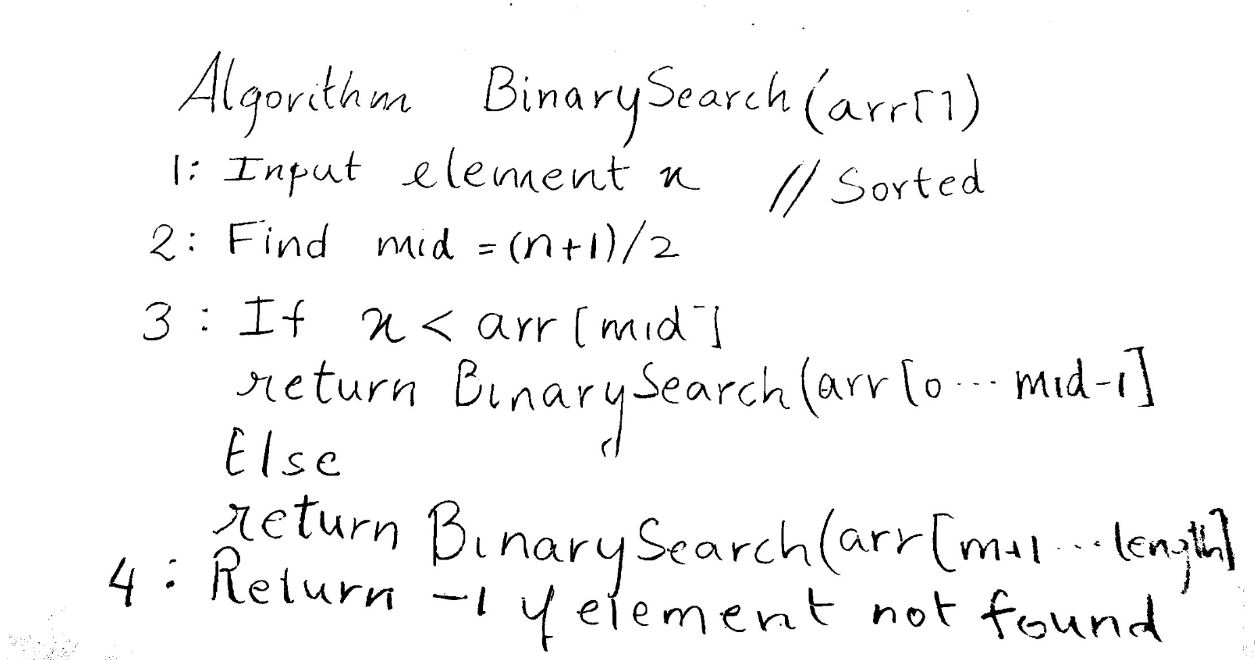 Algorithm BinarySearch(arr[])
1: Input element x // Sorted
2: Find mid = (n+1)/2
3: If x < arr[mid]
return BinarySearch(arr[0...mid-1]
Else
return BinarySearch(arr[m+1...length]
4: Return -1 if element not found